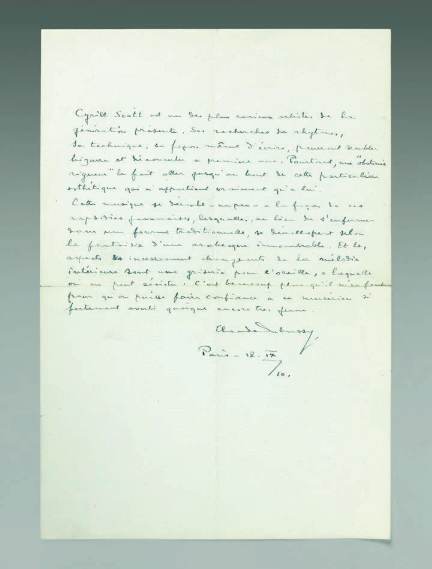 Cyrill Scott est un des plus curieux artistes de la
génération présente. Ses recherches de rhytmes,
sa technique, sa façon même d'écrire, peuvent sembler
bizarre et déconcerter a première vue. Pourtant, une "obstinée
rigueur" le fait aller jusqu'au bout de cette particulière
esthétique qui n'appartient vraiment qu'a lui.
Cette musique se déroule a la façon de ces
rapsodies javanaises, lesquelles, au lieu de s'enfermer
dans une forme traditionnelle, se développent selon
la fantaisie d'une arabesque innombrable. Et les
aspects incessamment changeants de la mélodie
intérieure sont une griserie pour l'oreille, a laquelle
on ne peut résister. C'est beaucoup plus qu'il
pour qu'on puisse faire confiance a ce musicien si
fortement quoique encore très jeune.
Claude Debussy
Paris - 12. IX
/10.